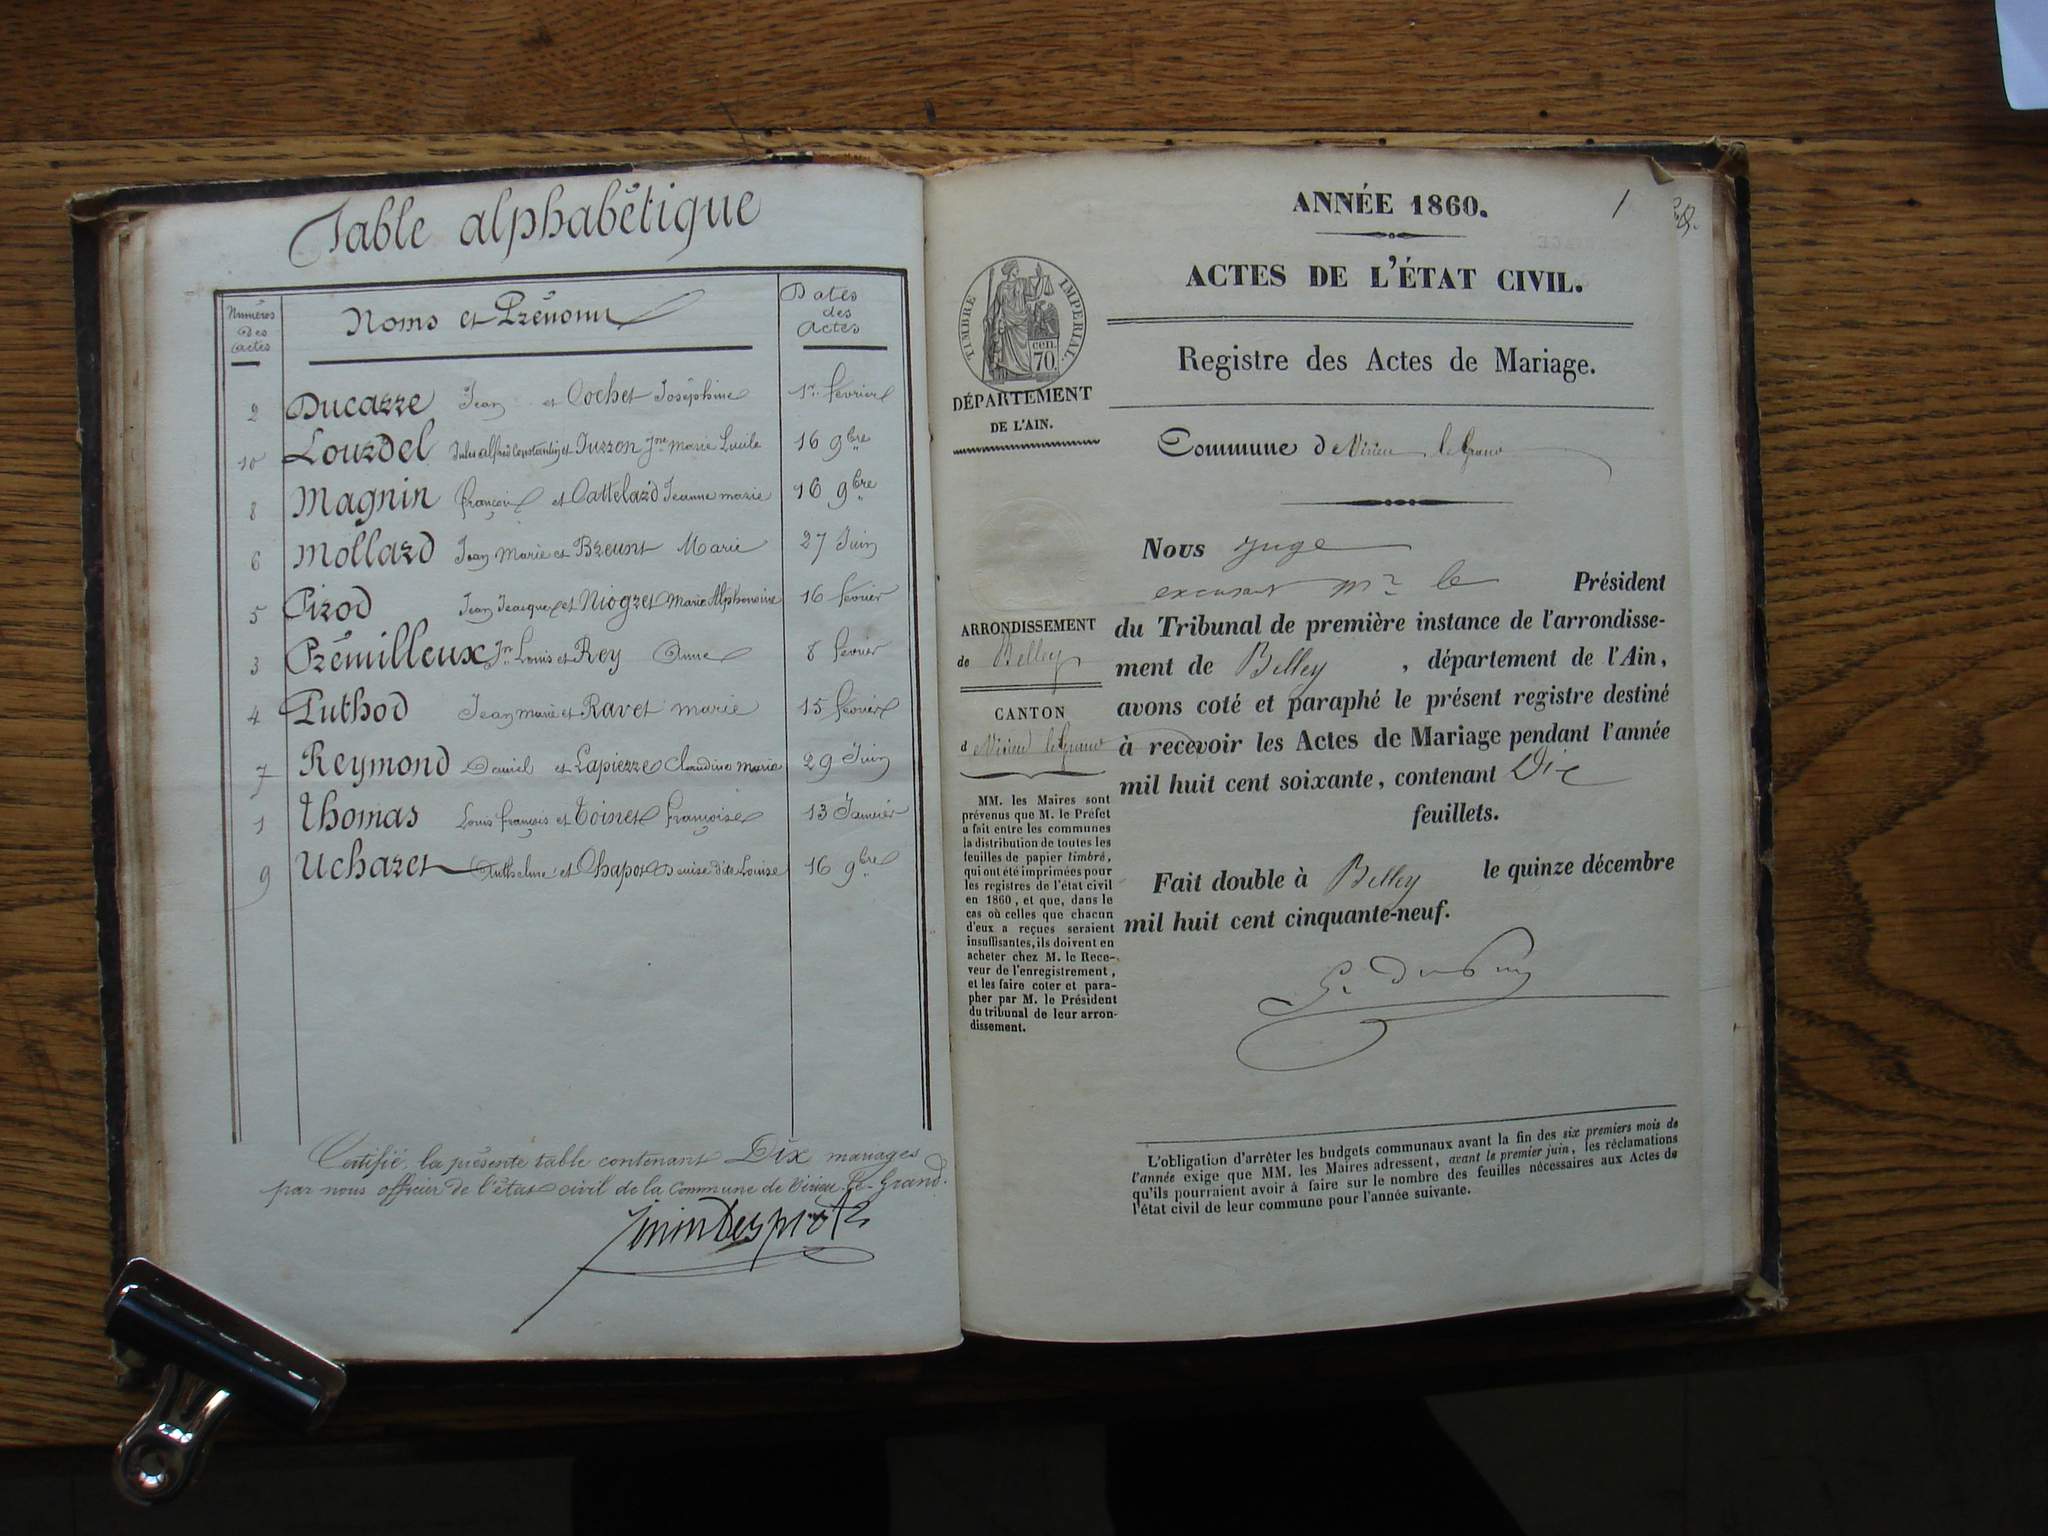 Table alphabétique
Numéros des actes
Noms et Prénoms
Dates des Actes
2 Ducarre Jean et Cochet Joséphine 1er février
10 Lourdel Jules alfred Constantin et Juzzon Jne Marie Lucile 16 9bre
8 Magnin françois et Cattelard Jeanne marie 16 9bre
6 Mollard Jean Marie et Breunt Marie 27 Juin
5 Pirod Jean Jacques et Niogret Marie Alphonsine 16 février
3 Prémilleux Jn Louis et Rey Anne 8 février
4 Puthod Jean marie et Ravet marie 15 février
7 Reymond Daniel et Lapierre Claudine marie 29 Juin
1 Thomas Louis françois et Toinet françoise 13 Janvier
9 Ucharet Anthelme et Chapot Denise dite Louise 16 9bre
Certifié la présente table contenant Dix mariages
par nous officier de l'état civil de la Commune de Virieu-le-Grand.
ANNÉE 1860.
1
ACTES DE L'ÉTAT CIVIL.
TIMBRE IMPERIAL.
cen. 70.
Registre des Actes de Mariage.
DÉPARTEMENT
DE L'AIN.
Commune de Virieu le Grand
Nous juge
excusant Mr le Président
du Tribunal de première instance de l'arrondisse-
ment de Belley, département de l'Ain,
avons coté et paraphé le présent registre destiné
à recevoir les Actes de Mariage pendant l'année
mil huit cent soixante, contenant Dix
feuillets.
Fait double à Belley le quinze décembre
mil huit cent cinquante-neuf.
ARRONDISSEMENT
de Belley
CANTON
d Virieu le Grand
MM. les Maires sont
prévenus que M. le Préfet
a fait entre les communes
la distribution de toutes les
feuilles de papier timbré,
qui ont été imprimées pour
les registres de l'état civil
en 1860, et que, dans le
cas où celles que chacun
d'eux a reçues seraient
insuffisantes, ils doivent en
acheter chez M. le Rece-
veur de l'enregistrement,
et les faire coter et para-
pher par M. le Président
du tribunal de leur arron-
dissement.
L'obligation d'arrêter les budgets communaux avant la fin des six premiers mois de
l'année exige que MM. les Maires adressent, avant le premier juin, les réclamations
qu'ils pourraient avoir à faire sur le nombre des feuilles nécessaires aux Actes de
l'état civil de leur commune pour l'année suivante.